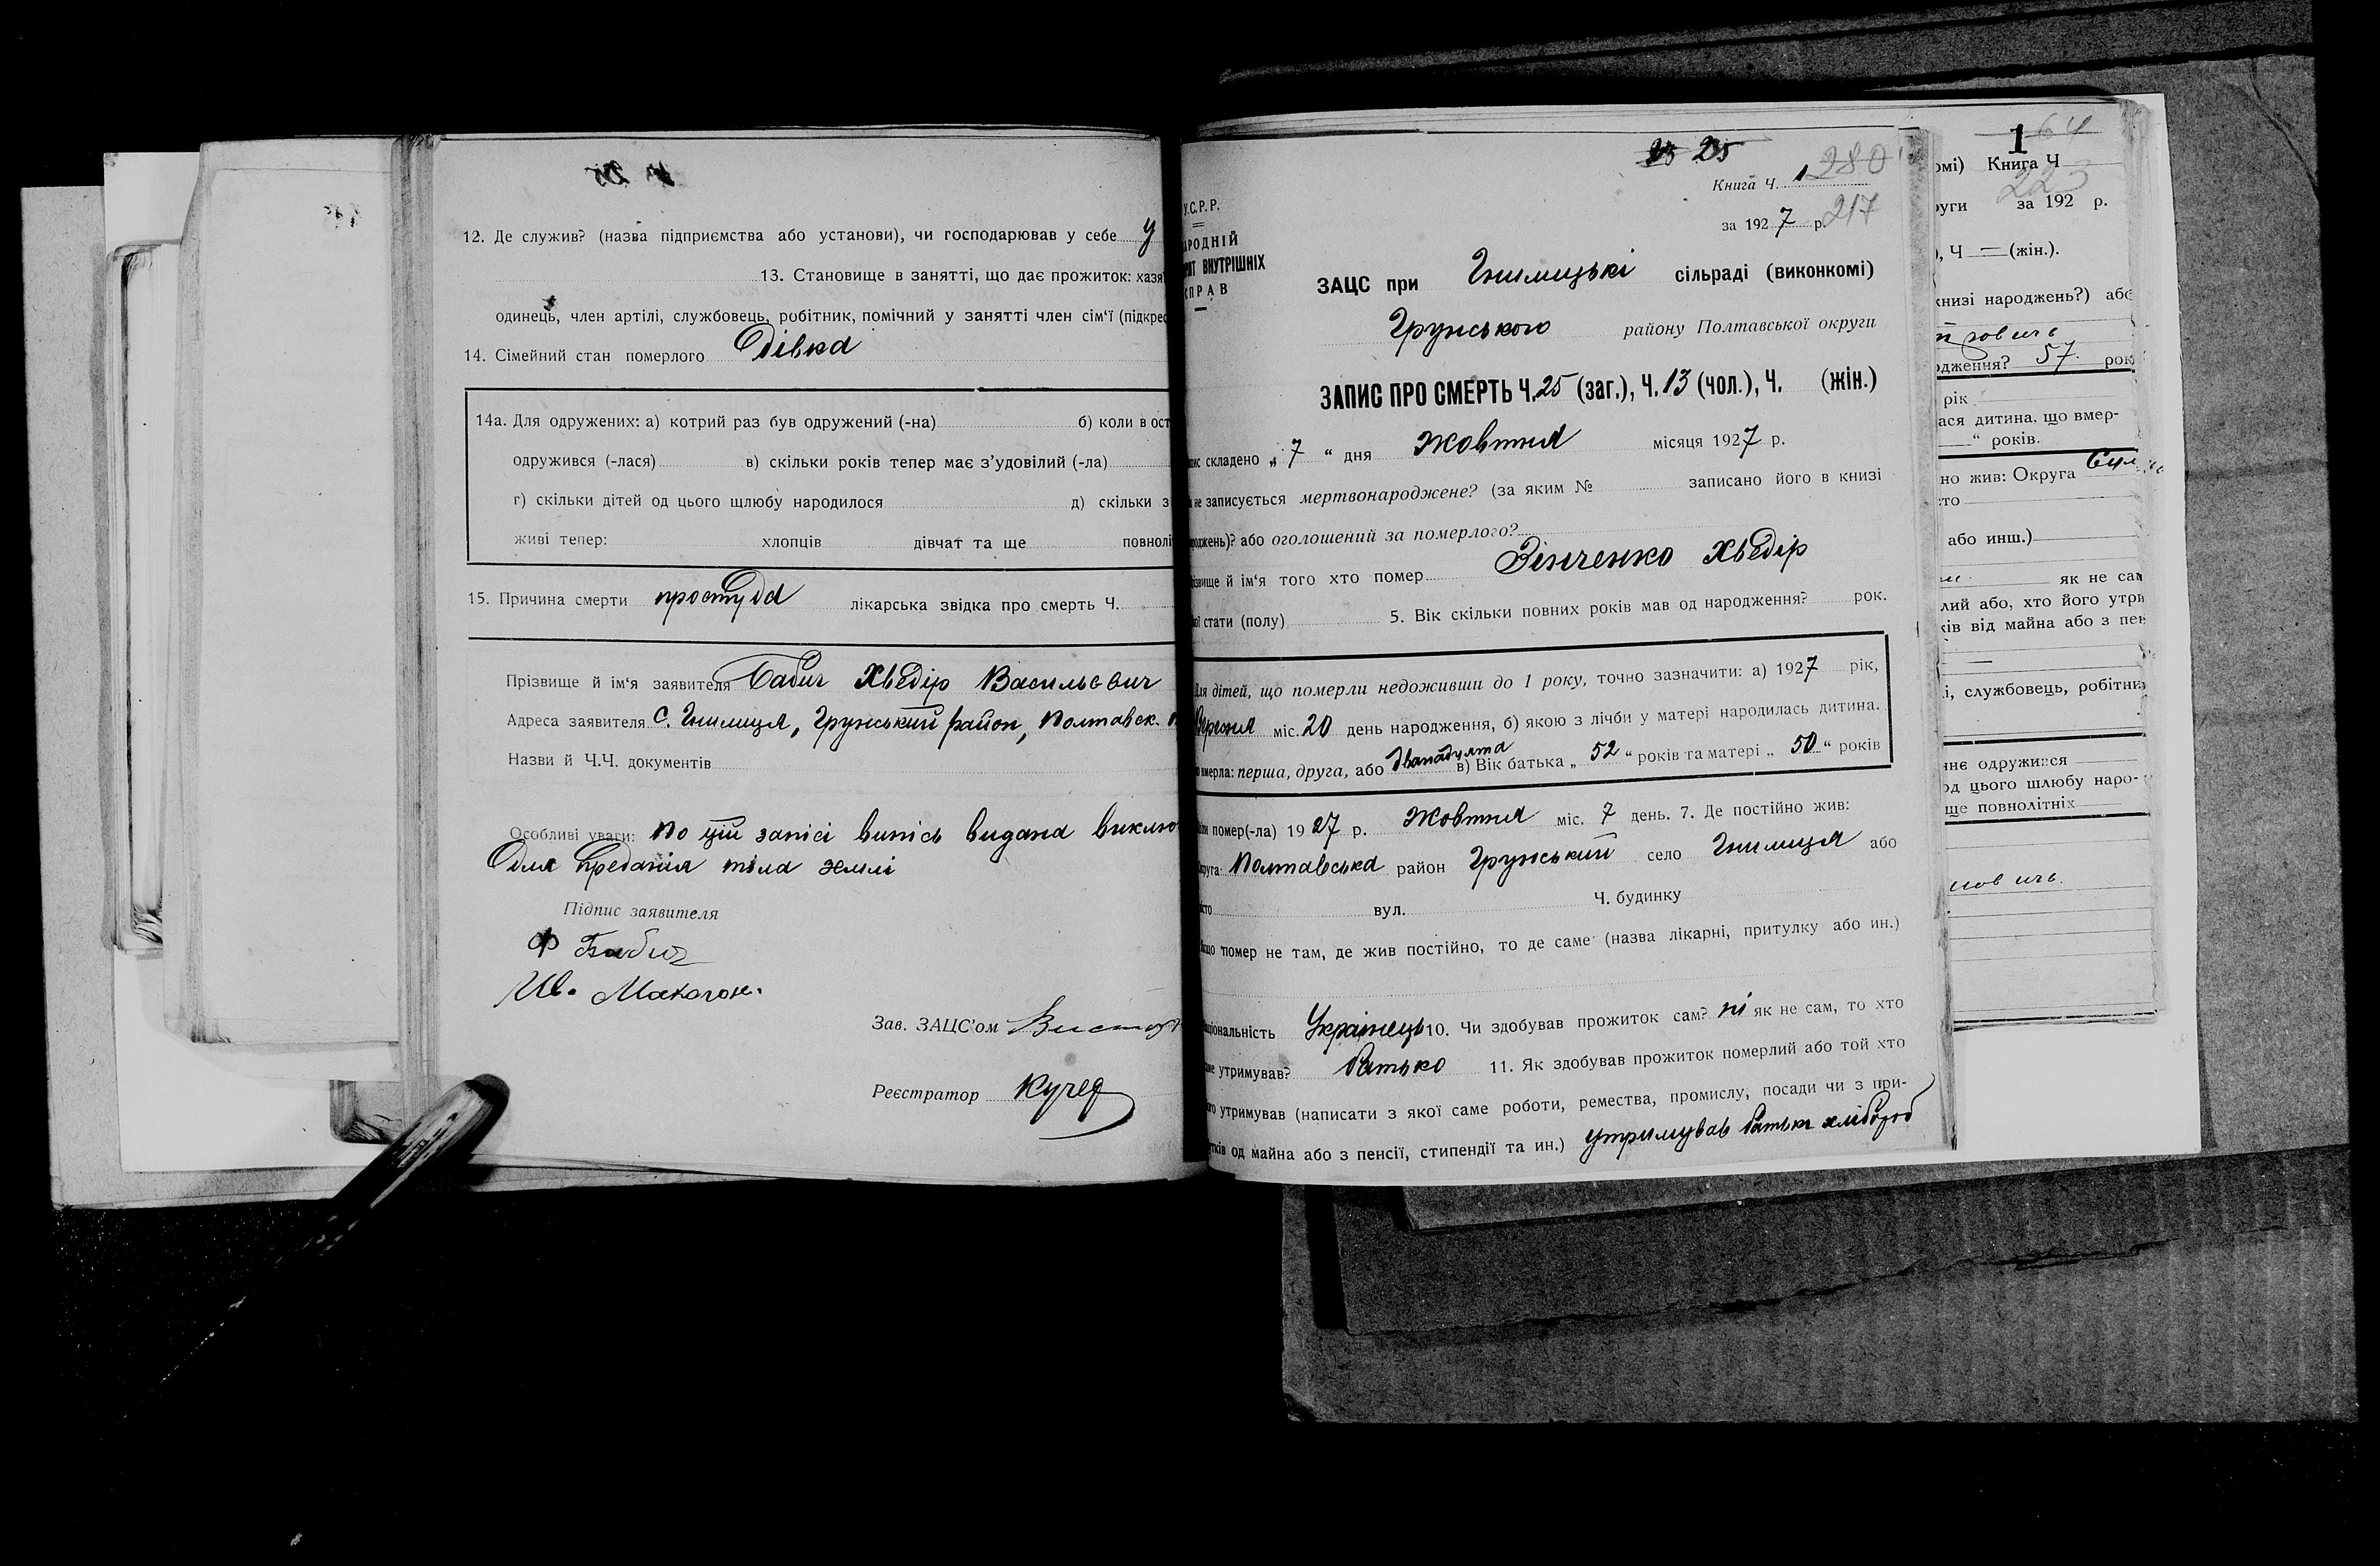 12. Де служив? (назва підприємства або установи), чи господарював у себе у
13. Становище в занятті, що дає прожиток: хазя
одинець, член артілі, службовець, робітник, помічний у занятті член сім'ї (підкрес
14. Сімейний стан померлого Дівка
14а. Для одружених: а) котрий раз був одружений (-на) б) коли в ост
одружився (-лася) в) скільки років тепер має з'удовілий (-ла)
г) скільки дітей од цього шлюбу народилося д) скільки з
живі тепер: хлопців дівчат та ще повнолі
15. Причина смерти простуда лікарська звідка про смерть Ч.
Прізвище й ім'я заявителя Бабич Хведір Васильович
Адреса заявителя с. Гнилиця, Грунський район, Полтавск.
Назви й Ч.Ч. документів
Особливі уваги: по цій запісі випісь видана виклю
для предания тіла землі
Підпис заявителя
Ф Бабич
Ив. Макогон.
Зав. ЗАЦС'ом
Реєстратор Кучер
25 25
280
Книга Ч. 1
за 1927 р. 217
У.С.Р.Р.
АРОДНІЙ
РІЯТ ВНУТРІШНІХ
СПРАВ
ЗАЦС при Гнилицькі сільраді (виконкомі)
Грунського району Полтавської округи
ЗАПИС ПРО СМЕРТЬ Ч. 25 (заг.), Ч. 13 (чол.), Ч. (жін.)
пис складено „ 7 “ дня Жовтня місяця 1927 р.
и не записується мертвонароджене? (за яким № записано його в книзі
роджень)? або оголошений за померлого?
різвище й ім'я того хто помер Зінченко Хведір
кої стати (полу) 5. Вік скільки повних років мав од народження? рок.
Для дітей, що померли недоживши до 1 року, точно зазначити: а) 1927 рік,
Вересня міс. 20 день народження, б) якою з лічби у матері народилась дитина.
о вмерла: перша, друга, або дванадцята в) Вік батька „ 52 “ років та матері „ 50 “ років
ли помер(-ла) 1927 р. Жовтня міс. 7 день. 7. Де постійно жив:
круга Полтавська район Грунський село Гнилиця або
істо вул. Ч. будинку
Якщо помер не там, де жив постійно, то де саме (назва лікарні, притулку або ин.)
аціональність Українець 10. Чи здобував прожиток сам? ні як не сам, то хто
аме утримував? батько 11. Як здобував прожиток померлий або той хто
ого утримував (написати з якої саме роботи, ремества, промислу, посади чи з при-
утків од майна або з пенсії, стипендії та ин.) утримував батько хлібороб
1 64
омі) Книга Ч
223
руги за 192 р.
), Ч — (жін.).
книзі народжень?) або
ович
одження? 57. рок
рік
ася дитина, що вмер-
“ років.
но жив: Округа
сто
або инш.)
як не сам
лий або, хто його утри
ків від майна або з пен
і, службовець, робітни
нє одружився
од цього шлюбу наро-
ще повнолітніх
нович.